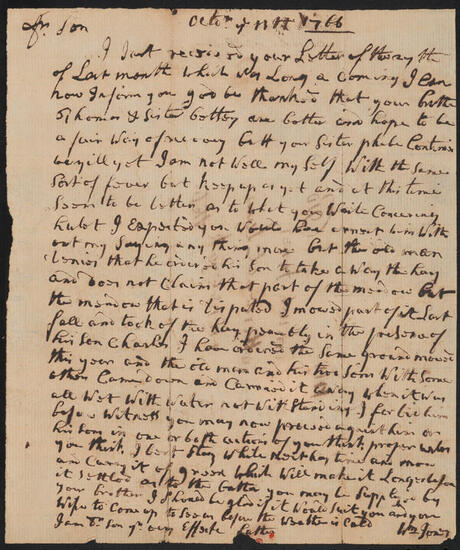 Dr. Son Octbr ye 11th 1766
I Just received your Letter of the 29 th
of Last month which was Long a Coming I Can
now Inform you god be thanked that your brother
Thomas & Sister bettey are better and hope to be
a fair way of recovery but your Sister phebe Continues
very ill yet I am not Well my Self With the Same
Sort of fever but keep up as yet and at this time
Seem to be better as to what you Write Concerning
I Expected you Would have arrest him With
out my Saying any thing more but the old man
denies that he ordered his Son to take a Way the hay
and does not Claim that part of the medow but
the medow that is Disputed I mowed part of it Last
fall and took of the hay peaceably in the presence of
his Son Charles I have ordered the Same ground mowed
this year and the old man and his two Sons With Some
others Came down and Carried it away when it was
all Wet With Water not Withstanding I forbid him
before Witness you may now proceed against him or
his Son in one or both actions if you think proper unless
you think I best Stay while next hay time and mow
and Carry it of green which Will make it Longer before
it Settled as to the batta you may be Supplied by
your brother I Should be glad if it Would Suit you and your
Wife to Come up to See us before the Weather is Cold
I am Dr Son yr very Effecte father Wm Jones